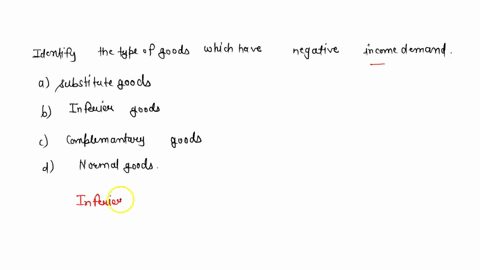 Identify the type of goods which have negative income demand.
a) substitute goods
b) Inferior goods
c) Complemantary goods
d) Normal goods.
Inferior